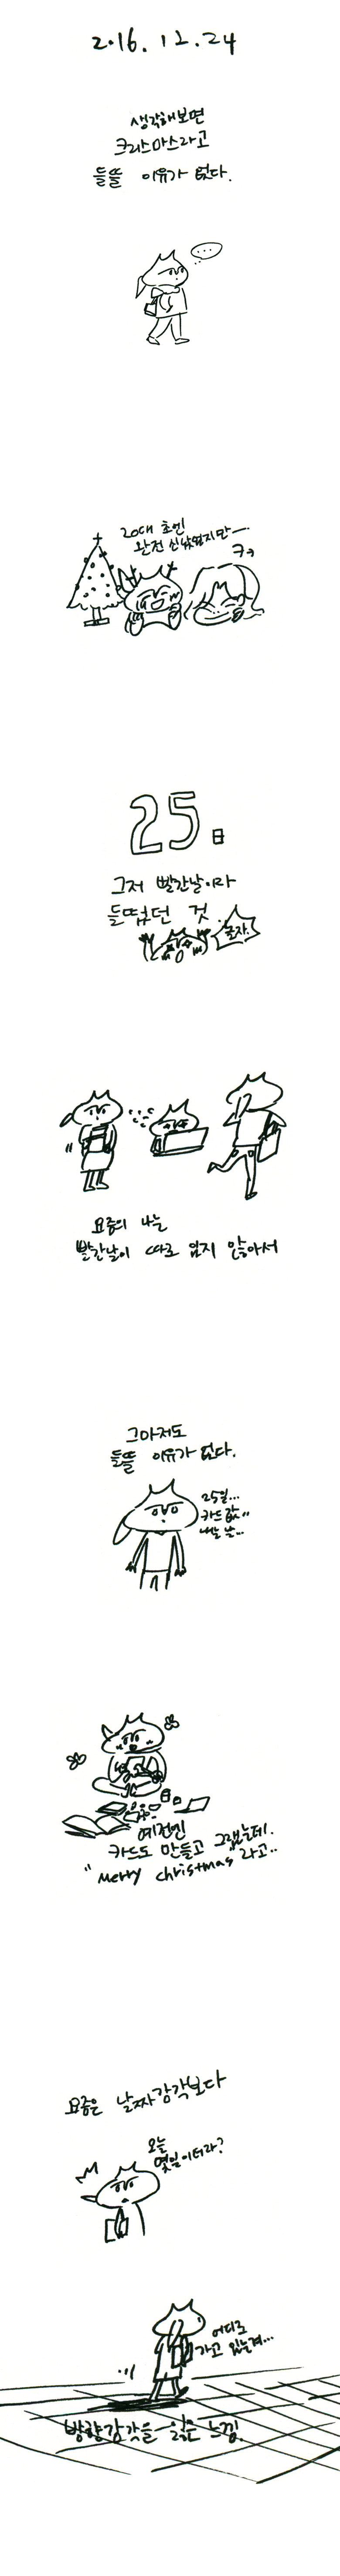 2016.12.24
생각해보면
크리스마스라고
들뜰 이유가 없다.
...
20대 초엔
완전 신났었지만ㅡ
ㅋㅋ
25일
그저 빨간날이라
들떴던 것.
놀자!
요즘의 나는
빨간날이 따로 있지 않아서
그마저도
들뜰 이유가 없다.
25일...
카드값..
내는 날...
예전엔
카드도 만들고 그랬는데.
"merry christmas"라고..
요즘은 날짜감각보다
오늘
몇일이더라?
어디로
가고 있는겨...
방향감각을 잃은 느낌.